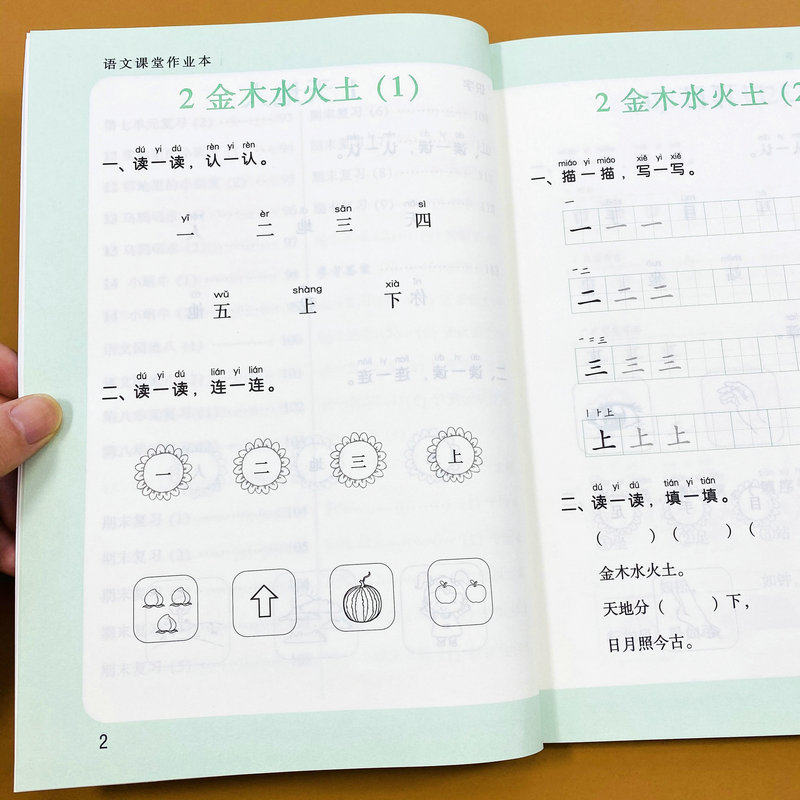 语文课堂作业本
2 金木水火土（1）
dú yi dú rèn yi rèn
一、读一读，认一认。
yī èr sān sì
一 二 三 四
wǔ shàng xià
五 上 下
dú yi dú lián yi lián
二、读一读，连一连。
一 二 三 上
2
2 金木水火土（2
miáo yi miáo xiě yi xiě
一、描一描，写一写。
一
一 一 一
一 二
二 二 二
一 二 三
三 三 三
上 上 上
dú yi dú tián yi tián
二、读一读，填一填。
（ ）（ ）（
金木水火土。
天地分（ ）下，
日月照今古。